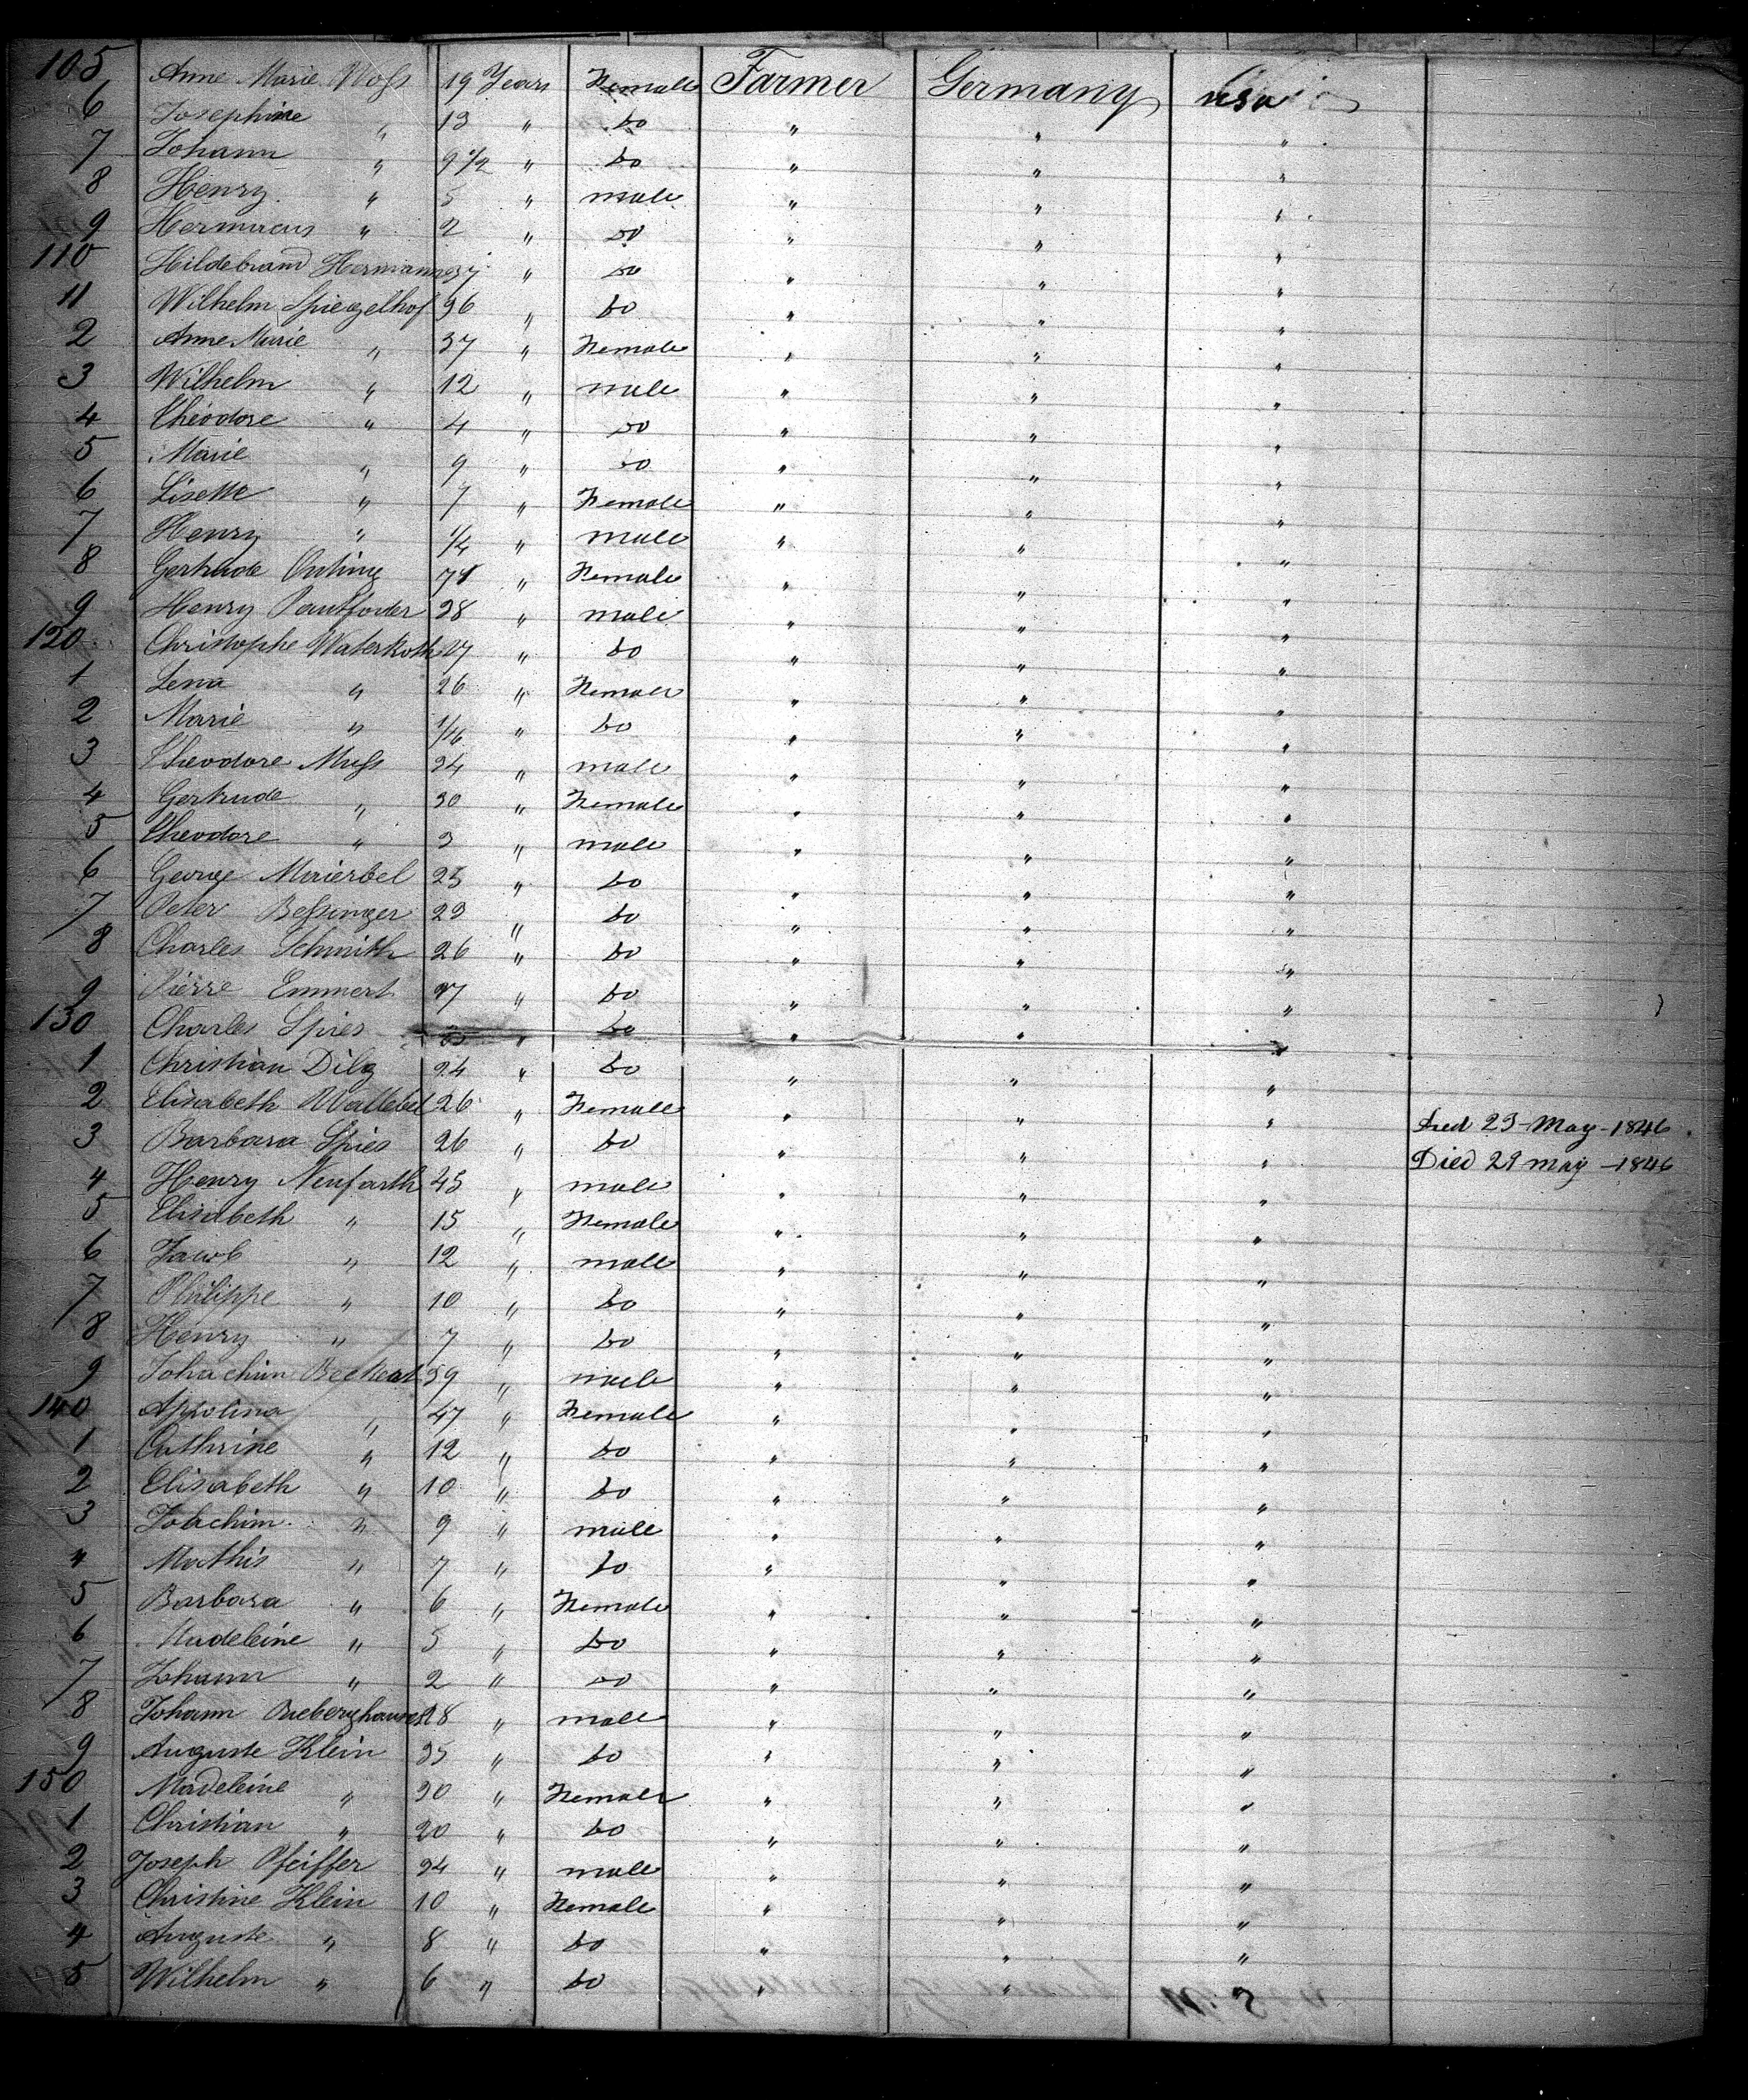 105 Anne Marie Woss 19 Years Female Farmer Germany usa
6 Josephine " 13 " do " " "
7 Johann " 9 1/2 " do " " "
8 Henry " 5 " male " " "
9 Hermann " 2 " do " " "
110 Hildebrand Hermanns 37 " do " " "
11 Wilhelm Spiegelhof 36 " do " " "
2 Anne Marie " 37 " Female " " "
3 Wilhelm " 12 " male " " "
4 Théodore " 4 " do " " "
5 Marie " 9 " do " " "
6 Lisette " 7 " Female " " "
7 Henry " 1/4 " male " " "
8 Gertrude 71 " Female " " "
9 Henry 28 " male " " "
120 Christophe Waterkoth 27 " do " " "
1 Lena " 26 " Female " " "
2 Marie " 1/16 " do " " "
3 Theodore Muss 34 " male " " "
4 Gertrude " 30 " Female " " "
5 Theodore " 3 " male " " "
6 George Maierbel 25 " do " " "
7 Peter Bessinger 23 " do " " "
8 Charles Schmith 26 " do " " "
9 Pierre Emmert 27 " do " " "
130 Charles Spies " do " " "
1 Christian Dilg 24 " do " " "
2 Elisabeth Wallebel 26 " Female " " " Died 23 - May - 1846
3 Barbara Spies 26 " do " " " Died 29 may - 1846
4 Henry Neufarth 45 " male " " "
5 Elisabeth " 15 " Female " " "
6 Jacob " 12 " male " " "
7 Philippe " 10 " do " " "
8 Henry " 7 " do " " "
9 Johachim Beckert 39 " male " " "
140 Apolina " 47 " Female " " "
1 Cathrine " 12 " do " " "
2 Elisabeth " 10 " do " " "
3 Johachim " 9 " male " " "
4 Mathis " 7 " do " " "
5 Barbara " 6 " Female " " "
6 Madeleine " 5 " do " " "
7 Johann " 2 " do " " "
8 Johann 28 " male " " "
9 Auguste Klein 35 " do " " "
150 Madeleine " 30 " Female " " "
1 Christian " 20 " do " " "
2 Joseph Pfeiffer 34 " male " " "
3 Christine Klein 10 " Female " " "
4 Auguste " 8 " do " " "
5 Wilhelm " 6 " do " "